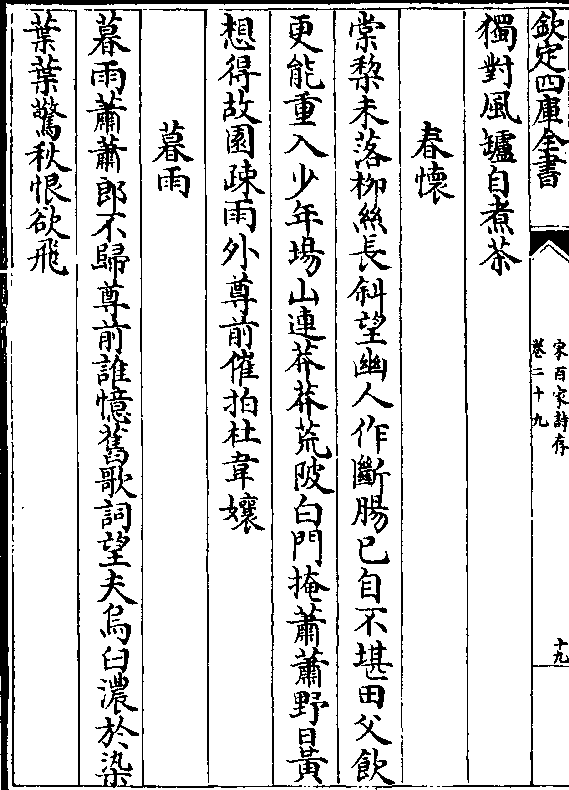 欽定四庫全書
宋百家詩存
卷二十九
十九
獨對風爐自煮茶
春懷
棠黎未落柳絲長斜望幽人作斷腸已自不堪田父飲
更能重入少年場山連莽莽荒陂白門掩蕭蕭野日黃
想得故園疎雨外尊前催拍杜韋孃
暮雨
暮雨蕭蕭郎不歸尊前誰憶舊歌詞望夫烏臼濃於染
葉葉驚秋恨欲飛